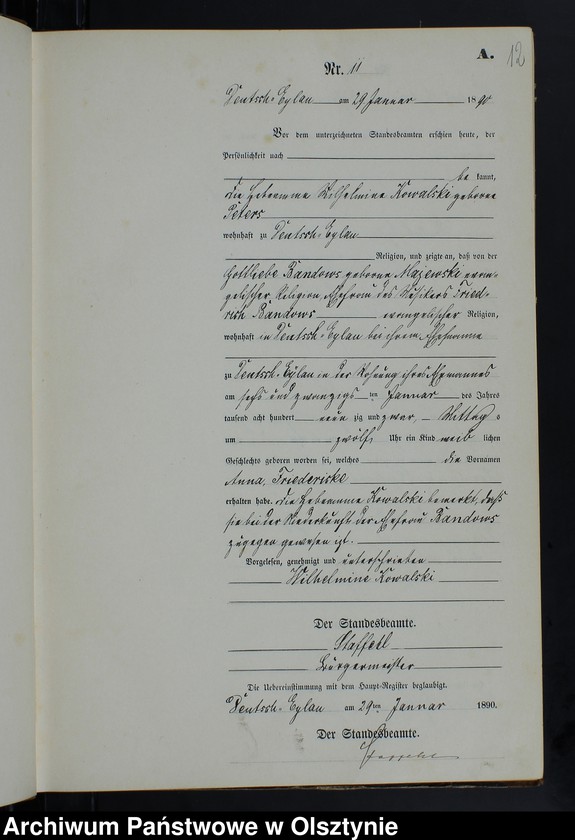 A. 12
Nr. 11
Deutsch-Eylau am 29 Januar 1890
Vor dem unterzeichneten Standesbeamten erschien heute, der
Persönlichkeit nach
be kannt,
die Hebamme Wilhelmine Kowalski geborne
Peters
wohnhaft zu Deutsch-Eylau
Religion, und zeigte an, daß von der
Gottliebe Bandows geborne Majewski evan-
gelischer Religion, Ehefrau des Musikers Fried-
rich Bandows evangelischer Religion,
wohnhaft in Deutsch-Eylau bei ihrem Ehemanne
zu Deutsch-Eylau in der Wohnung ihres Ehemannes
am sechs und zwanzigs ten Januar des Jahres
tausend acht hundert neun zig und zwar, Mittag s
um zwölf Uhr ein Kind weib lichen
Geschlechts geboren worden sei, welches die Vornamen
Anna, Friedericke
erhalten habe. Die Hebamme Kowalski bemerkt, daß
sie bei der Niederkunft der Ehefrau Bandows
zugegen gewesen ist.
Vorgelesen, genehmigt und unterschrieben
Wilhelmine Kowalski
Der Standesbeamte.
Bürgermeister
Die Uebereinstimmung mit dem Haupt-Register beglaubigt.
Deutsch-Eylau am 29ten Januar 1890.
Der Standesbeamte.
Archiwum Państwowe w Olsztynie